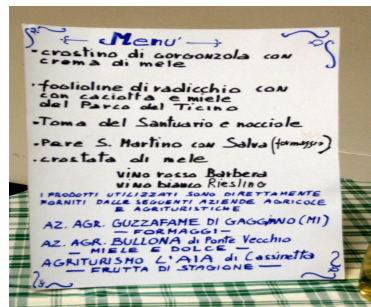 Menu'
- crostino di gorgonzola con
crema di mele
- foglioline di radicchio con
con caciotta e miele
del Parco del Ticino
- Toma del Santuario e nocciole
- Pere S. Martino con Salva (formaggio)
- crostata di mele
vino rosso Barbera
vino bianco Riesling
I PRODOTTI UTILIZZATI SONO DIRETTAMENTE
FORNITI DALLE SEGUENTI AZIENDE AGRICOLE
E AGRITURISTICHE
AZ. AGR. GUZZAFAME DI GAGGIANO (MI)
— FORMAGGI —
AZ. AGR. BULLONA di Ponte Vecchio
— MIELE E DOLCE —
AGRITURISMO L'AIA di Cassinetta
— FRUTTA DI STAGIONE —